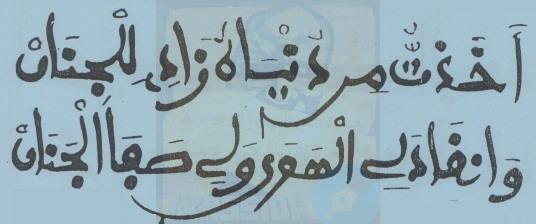 أَخَذتُّ مِن دُنْيَاهُ زَادِ لِلْجِنَانْ
وَانقَادَ لِي الْهَوَى وَلِي صَفَا الْجَنَانْ